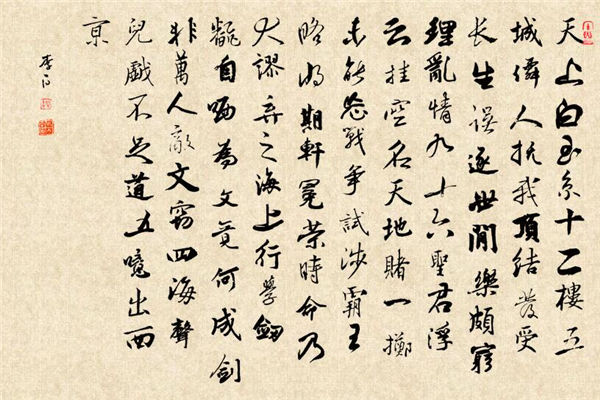 天上白玉京十二樓五
城僊人抚我頂结髮受
长生误逐世間樂頗窮
理亂情九十六聖君浮
云挂空名天地賭一擲
未能忘戰争試涉霸王
略将期軒冕荣時命乃
大謬弃之海上行學劒
翻自哂為文竟何成剑
非萬人敵文窃四海聲
兒戲不足道五噫出西
京
李白